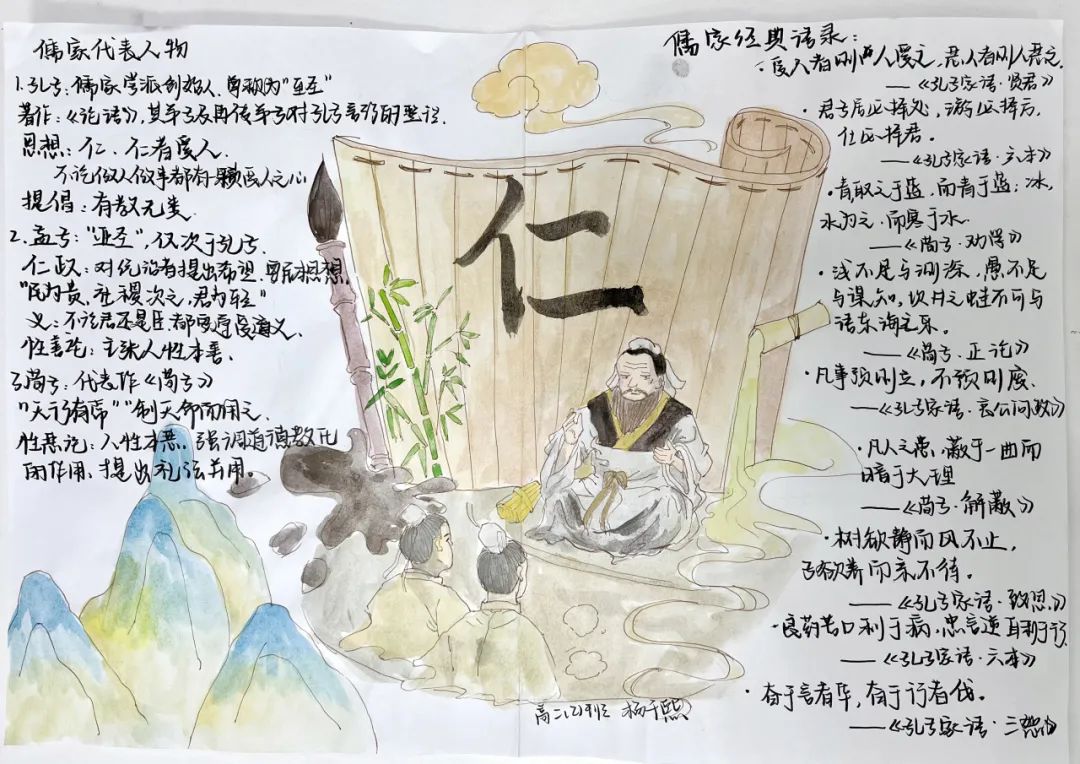 儒家代表人物
1.孔子：儒家学派创始人、曾称为"至圣"
著作：《论语》，其弟子及再传弟子对孔子言行的整记.
思想：仁、仁者爱人.
不论做人做事都有一颗爱人之心
提倡：有教无类.
2.孟子："亚圣"，仅次于孔子.
仁政：对统治者提出希望、民本思想.
"民为贵、社稷次之，君为轻"
义：不论君还是臣.都要尊良道义.
性善论：主张人性本善.
3荀子：代表作《荀子》
"天行有常""制天命而用之.
性恶论：人性本恶.强调道德教化
的作用、提出礼法并用。
仁
儒家经典语录：
·爱人者则人爱之，恶人者则人恶之.
——《孔子家语·贤君》
·君子居必择处，游必择方，
仕必择君。
——《孔子家语·六本》
·青取之于蓝.而青于蓝；冰，
水为之.而寒于水.
——《荀子·劝学》
·浅不足与测深，愚不足
与谋知，坎井之蛙不可与
语东海之乐。
——《荀子·正论》
·凡事预则立，不预则废.
——《孔子家语·哀公问政》
·凡人之患，蔽于一曲而
暗于大理
——《荀子·解蔽》
·树欲静而风不止，
子欲养而亲不待。
——《孔子家语·致思》
·良药苦口利于病，忠言逆耳利于行
——《孔子家语·六本》
·奋于言者华，奋于行者伐。
——《孔子家语·三恕》
高二(2)班 杨千熙